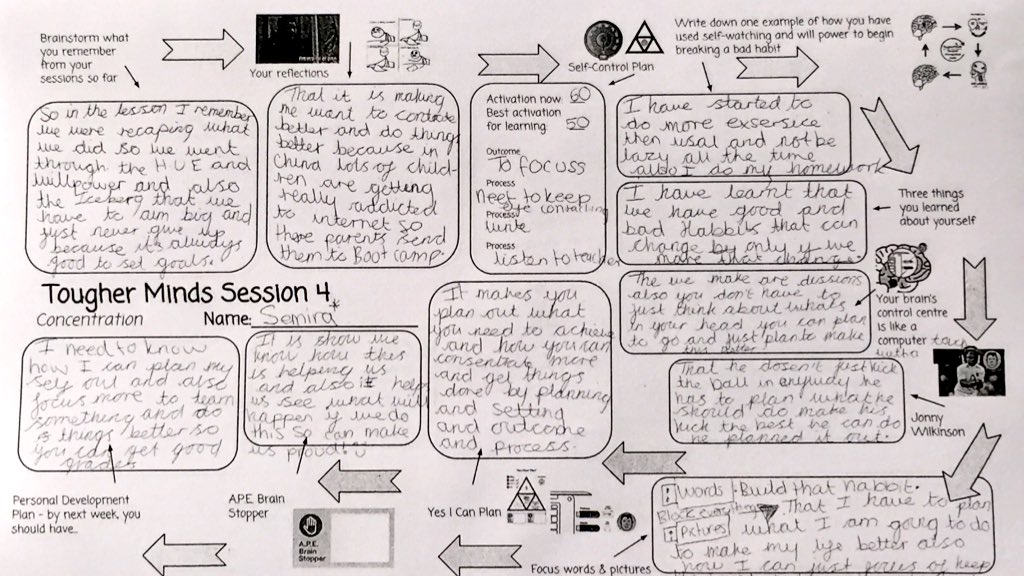 Brainstorm what
you remember
from your
sessions so far
So in the lesson I remember
we were recaping what
we did so we went
through the HUE and
willpower and also
the Iceberg that we
have to aim big and
just never give up
because its always
good to set goals.
Your reflections
That it is making
me want to
better and do things
better because in
China lots of child-
ren are getting
really addicted
to internet so
there parents send
them to Boot camp.
Self-Control Plan
Activation now: 60
Best activation
for learning: 50
Outcome
To focuss
Process
Need to keep
eye
Process
write
Process
listen to teacher
Write down one example of how you have
used self-watching and will power to begin
breaking a bad habit
I have started to
do more exsersice
then usal and not be
lazy all the time
also I do my homework
Three things
you learned
about yourself
I have learnt that
we have good and
bad Habbits that can
change by only if we
make that change.
Your brain's
control centre
is like a
computer
The we make are dissions
also you don't have to
just think about whats
in your head you can plan
to go and just plan to make
this better
Jonny
Wilkinson
That he dosen't just kick
the ball in anyway he
has to plan what he
should do make his
kick the best he can do
he planned it out.
Tougher Minds Session 4
Concentration
Name: Semira
Focus words & pictures
Words Build that habbit.
Pictures That I have to plan
what I am going to do
to make my life better also
how I can just focus of keep
Yes I Can Plan
It makes you
plan out what
you need to achieve
and how you can
consentrate more
and get things
done by planning
and setting
and outcome
and process.
A.P.E Brain
Stopper
A.P.E.
Brain
Stopper
It is show we
know how this
is helping us
and also it helps
us see what will
happen if we do
this so can make
us proud.
Personal Development
Plan - by next week, you
should have...
I need to know
how I can plan my
self out and also
focus more to learn
something and do
things better so
you can get good
grades